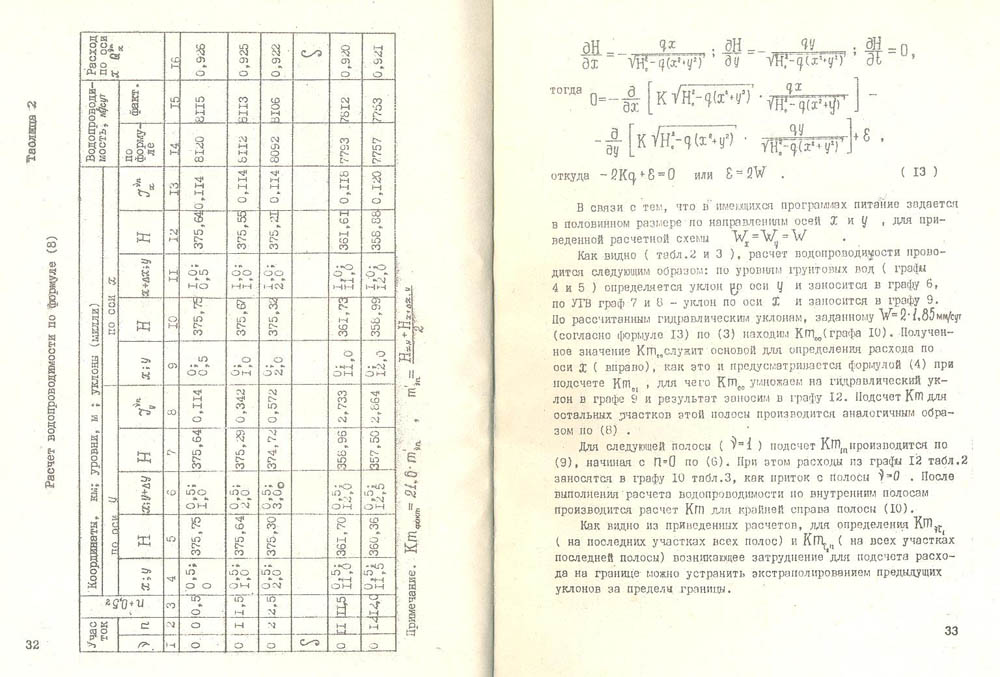 32
Таблица 2
Расчет водопроводимости по формуле (8)
Учас ток | n+0,5 | Координаты, км; уровни, м ; уклоны (м/км) | Водопроводимость, м²/сут | Расход по оси x Qᵛⁿₓ
по оси y | по оси x | по формуле | факт.
ν | n | x;y | H | x;y+Δy | H | Jᵛⁿ_y | x;y | H | x+Δx;y | H | Jᵛⁿₓ
I | 2 | 3 | 4 | 5 | 6 | 7 | 8 | 9 | 10 | 11 | 12 | 13 | 14 | 15 | 16
0 | 0 | 0,5 | 0,5; 0 | 375,75 | 0,5; 1,0 | 375,64 | 0,114 | 0; 0,5 | 375,75 | 1,0; 0,5 | 375,64 | 0,114 | 8120 | 8115 | 0,926
0 | 1 | 1,5 | 0,5; 1,0 | 375,64 | 0,5; 2,0 | 375,29 | 0,342 | 0; 1,0 | 375,67 | 1,0; 1,0 | 375,55 | 0,114 | 8112 | 8113 | 0,925
0 | 2 | 2,5 | 0,5; 2,0 | 375,30 | 0,5; 3,0 | 374,72 | 0,572 | 0; 2,0 | 375,32 | 1,0; 2,0 | 375,21 | 0,114 | 8092 | 8106 | 0,922
0 | 11 | 11,5 | 0,5; 11,0 | 361,70 | 0,5; 12,0 | 358,96 | 2,733 | 0; 11,0 | 361,73 | 1,0; 11,0 | 361,61 | 0,118 | 7793 | 7812 | 0,920
0 | 12 | 12,0 | 0,5; 11,5 | 360,36 | 0,5; 12,5 | 357,50 | 2,864 | 0; 12,0 | 358,99 | 1,0; 12,0 | 358,88 | 0,120 | 7757 | 7753 | 0,921
Примечание. Km факт = 21,6·m'ᵥₙ , m'ᵥₙ = (Hₓ,ᵧ + Hₓ₊Δₓ,ᵧ)/2
∂H/∂x = - qx/√(H₀²-q(x²+y²)) ; ∂H/∂y = - qy/√(H₀²-q(x²+y²)) ; ∂H/∂t = 0,
тогда 0 = - ∂/∂x [K √(H₀²-q(x²+y²)) · qx/√(H₀²-q(x²+y²))] -
- ∂/∂y [K √(H₀²-q(x²+y²)) · qy/√(H₀²-q(x²+y²))] + ε ,
откуда -2Kq + ε = 0 или ε = 2W . ( 13 )
В связи с тем, что в имеющихся программах питание задается
в половинном размере по направлениям осей x и y , для при-
веденной расчетной схемы Wₓ = Wᵧ = W .
Как видно ( табл.2 и 3 ), расчет водопроводимости прово-
дится следующим образом: по уровням грунтовых вод ( графы
4 и 5 ) определяется уклон по оси y и заносится в графу 6,
по УГВ граф 7 и 8 - уклон по оси x и заносится в графу 9.
По рассчитанным гидравлическим уклонам, заданному W=2·1,85 мм/сут
(согласно формуле 13) по (3) находим Km₀₀ (графа 10). Получен-
ное значение Km₀₀ служит основой для определения расхода по
оси x ( вправо), как это и предусматривается формулой (4) при
подсчете Km₀₁ , для чего Km₀₀ умножаем на гидравлический ук-
лон в графе 9 и результат заносим в графу 12. Подсчет Km для
остальных участков этой полосы производится аналогичным обра-
зом по (8) .
Для следующей полосы ( ν=1 ) подсчет Km₁ₙ производится по
(9), начиная с n=0 по (6). При этом расходы из графы 12 табл.2
заносятся в графу 10 табл.3, как приток с полосы ν=0 . После
выполнения расчета водопроводимости по внутренним полосам
производится расчет Km для крайней справа полосы (10).
Как видно из приведенных расчетов, для определения Km
( на последних участках всех полос) и Km ( на всех участках
последней полосы) возникающее затруднение для подсчета расхо-
да на границе можно устранить экстраполированием предыдущих
уклонов за пределы границы.
33